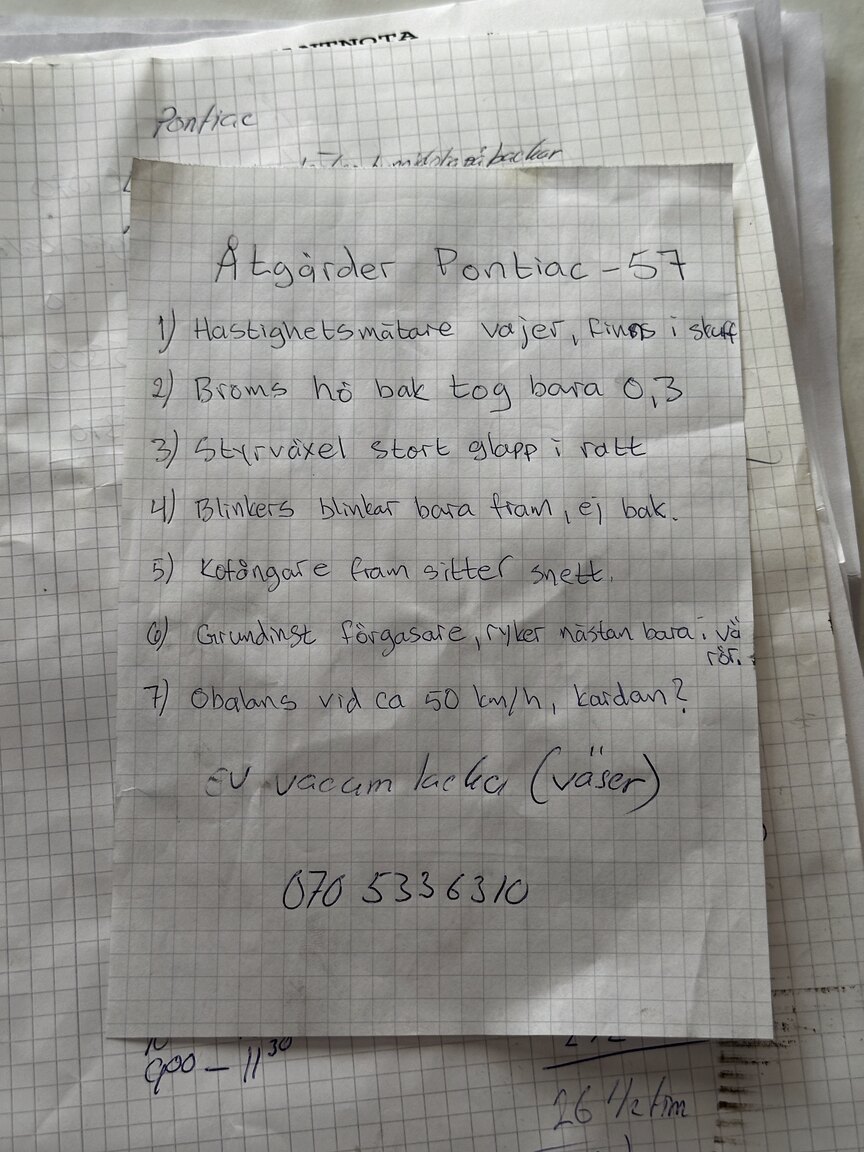 NTNOTA
Pontiac
backar
Åtgärder Pontiac -57
1) Hastighetsmätare vajer, finns i skuff
2) Broms hö bak tog bara 0,3
3) Styrväxel stort glapp i ratt
4) Blinkers blinkar bara fram, ej bak.
5) Kofångare fram sitter snett.
6) Grundinst förgasare, ryker nästan bara i vä
rör.
7) Obalans vid ca 50 km/h, kardan?
EV vacum lacka (väser)
070 5336310
900 - 11 30
26 1/2 tim